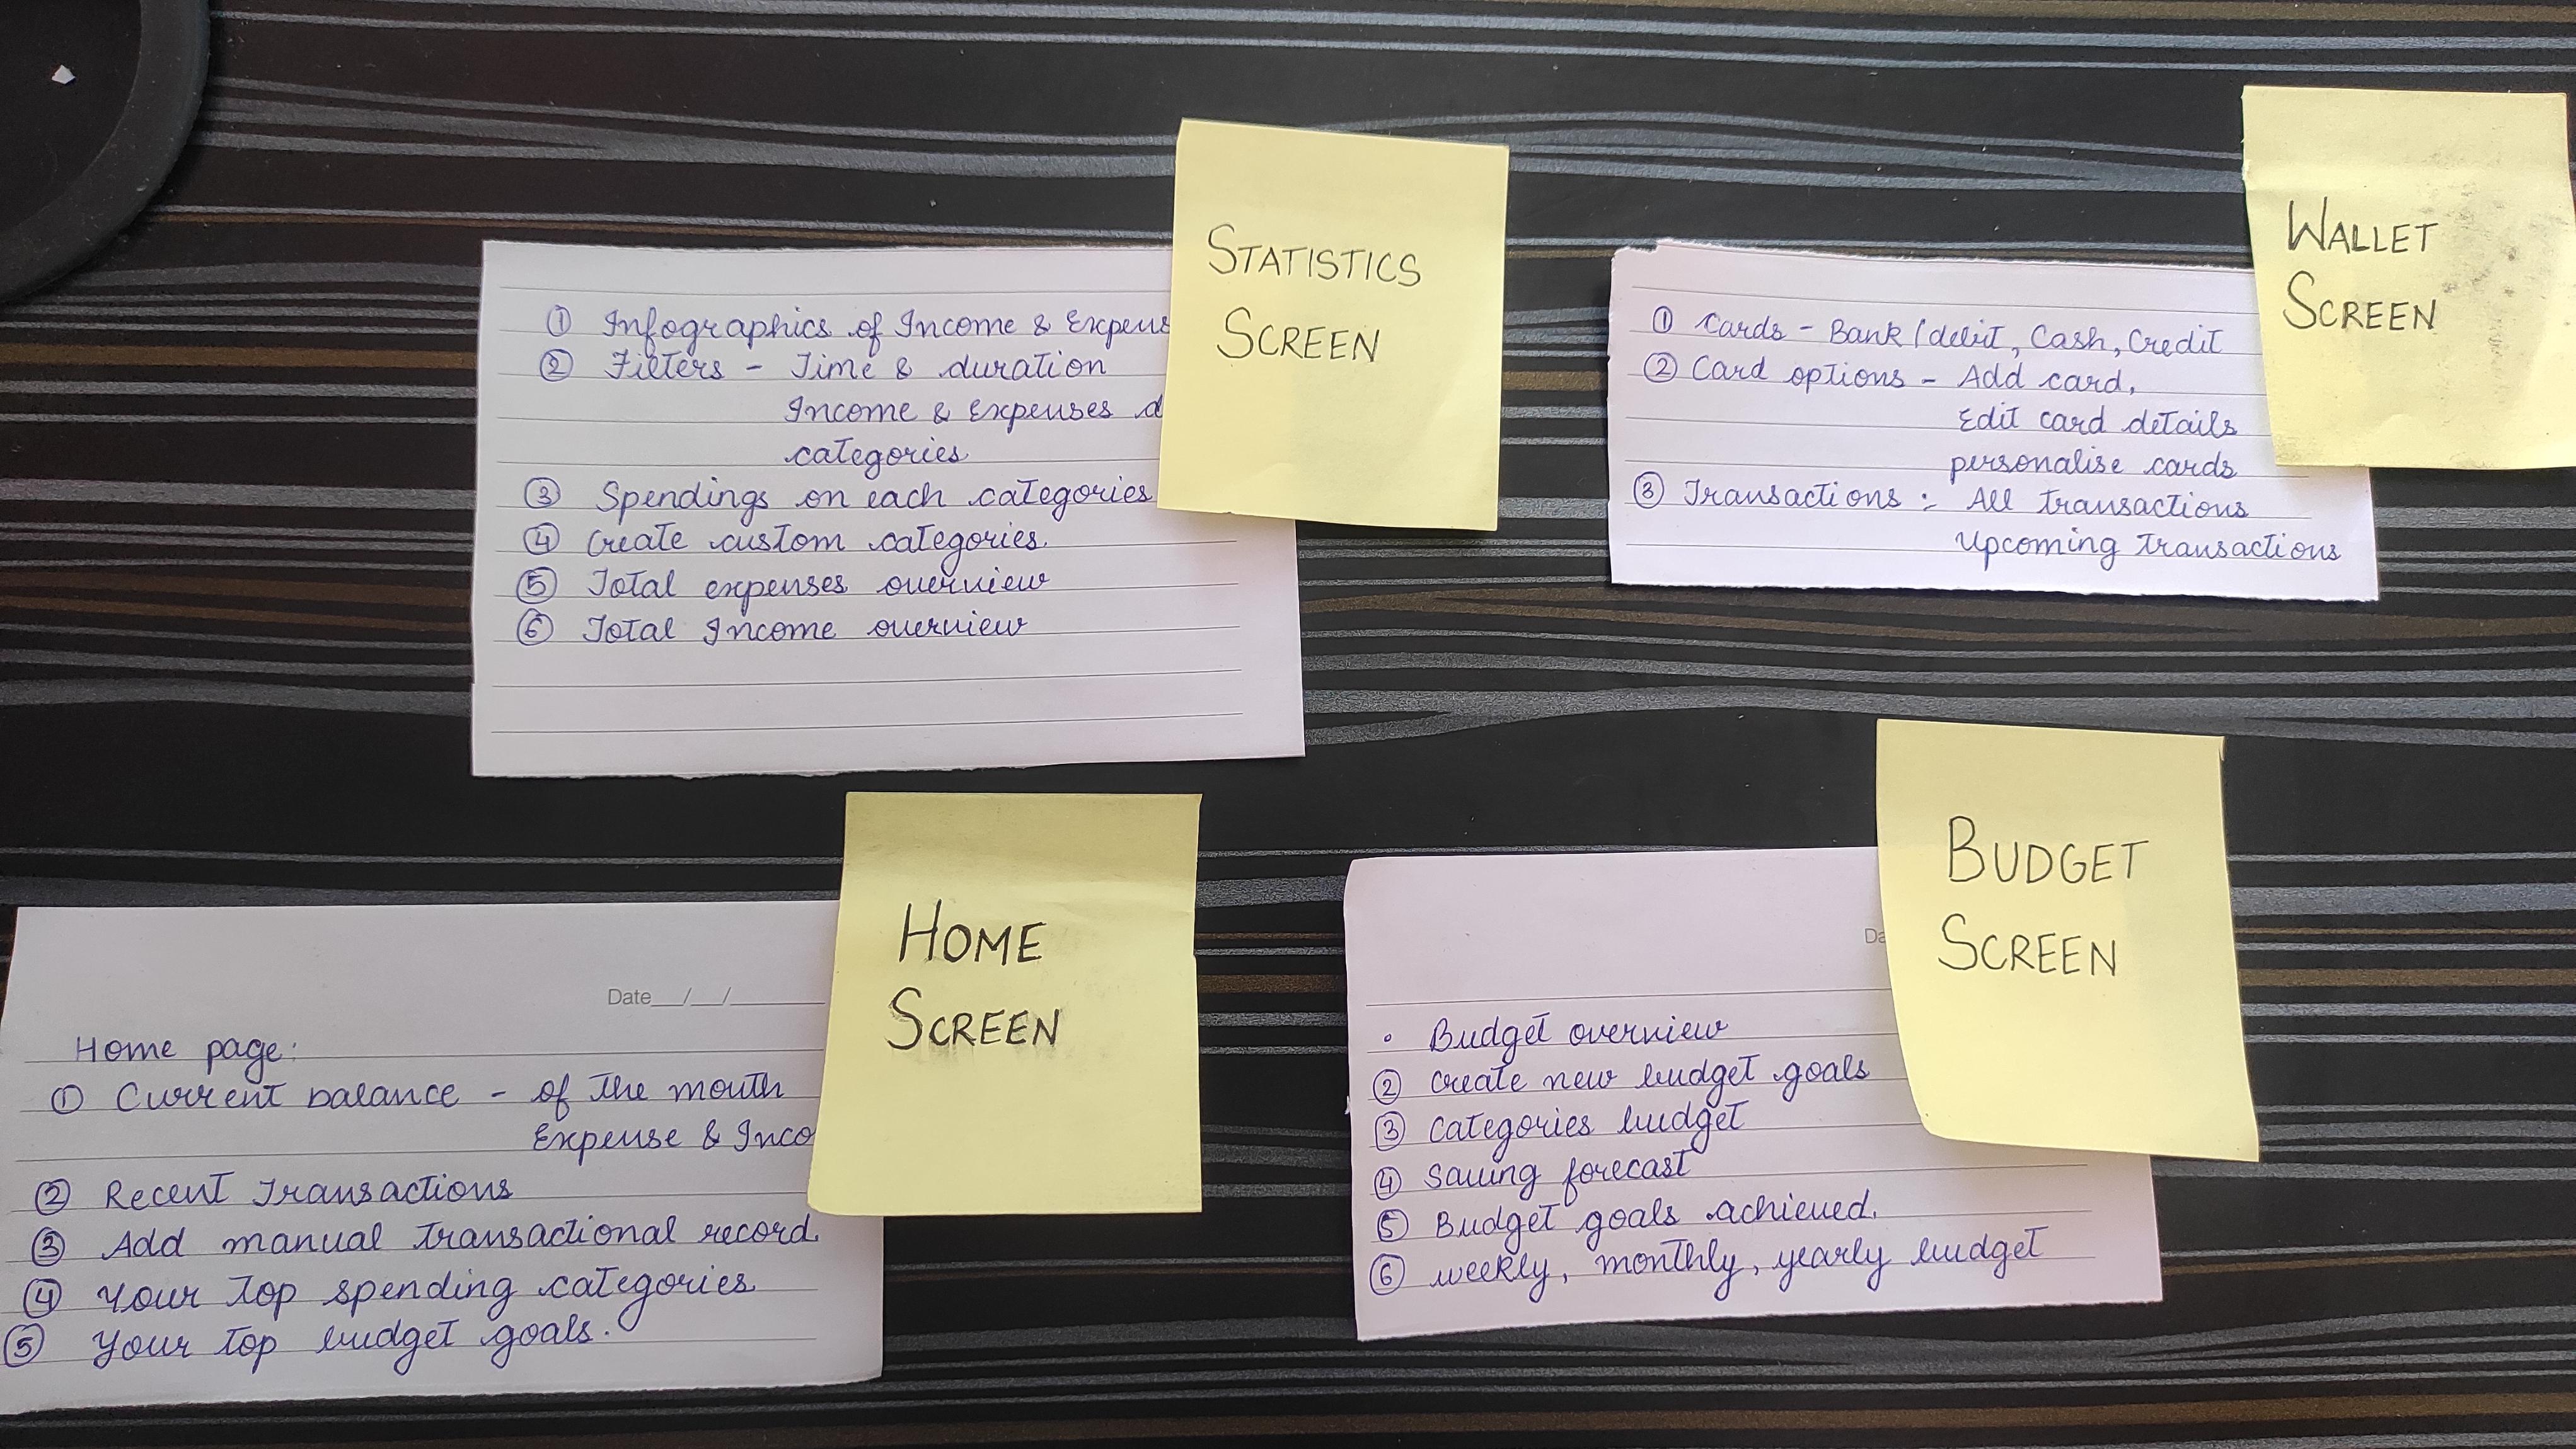 STATISTICS
SCREEN
① Infographics of Income & Expens
② Filters - Time & duration
Income & Expenses
categories
③ Spendings on each categories
④ Create custom categories.
⑤ Total expenses overview
⑥ Total Income overview
WALLET
SCREEN
① Cards - Bank/debit, Cash, Credit
② Card options - Add card,
Edit card details
personalise cards
③ Transactions : All transactions
Upcoming transactions
HOME
SCREEN
Date__/__/____
Home page:
① Current balance - of the month
Expense & Inco
② Recent Transactions
③ Add manual transactional record.
④ Your top spending categories
⑤ Your top budget goals.
BUDGET
SCREEN
Da
• Budget overview
② Create new budget goals
③ Categories budget
④ Saving forecast
⑤ Budget goals achieved.
⑥ weekly, monthly, yearly budget